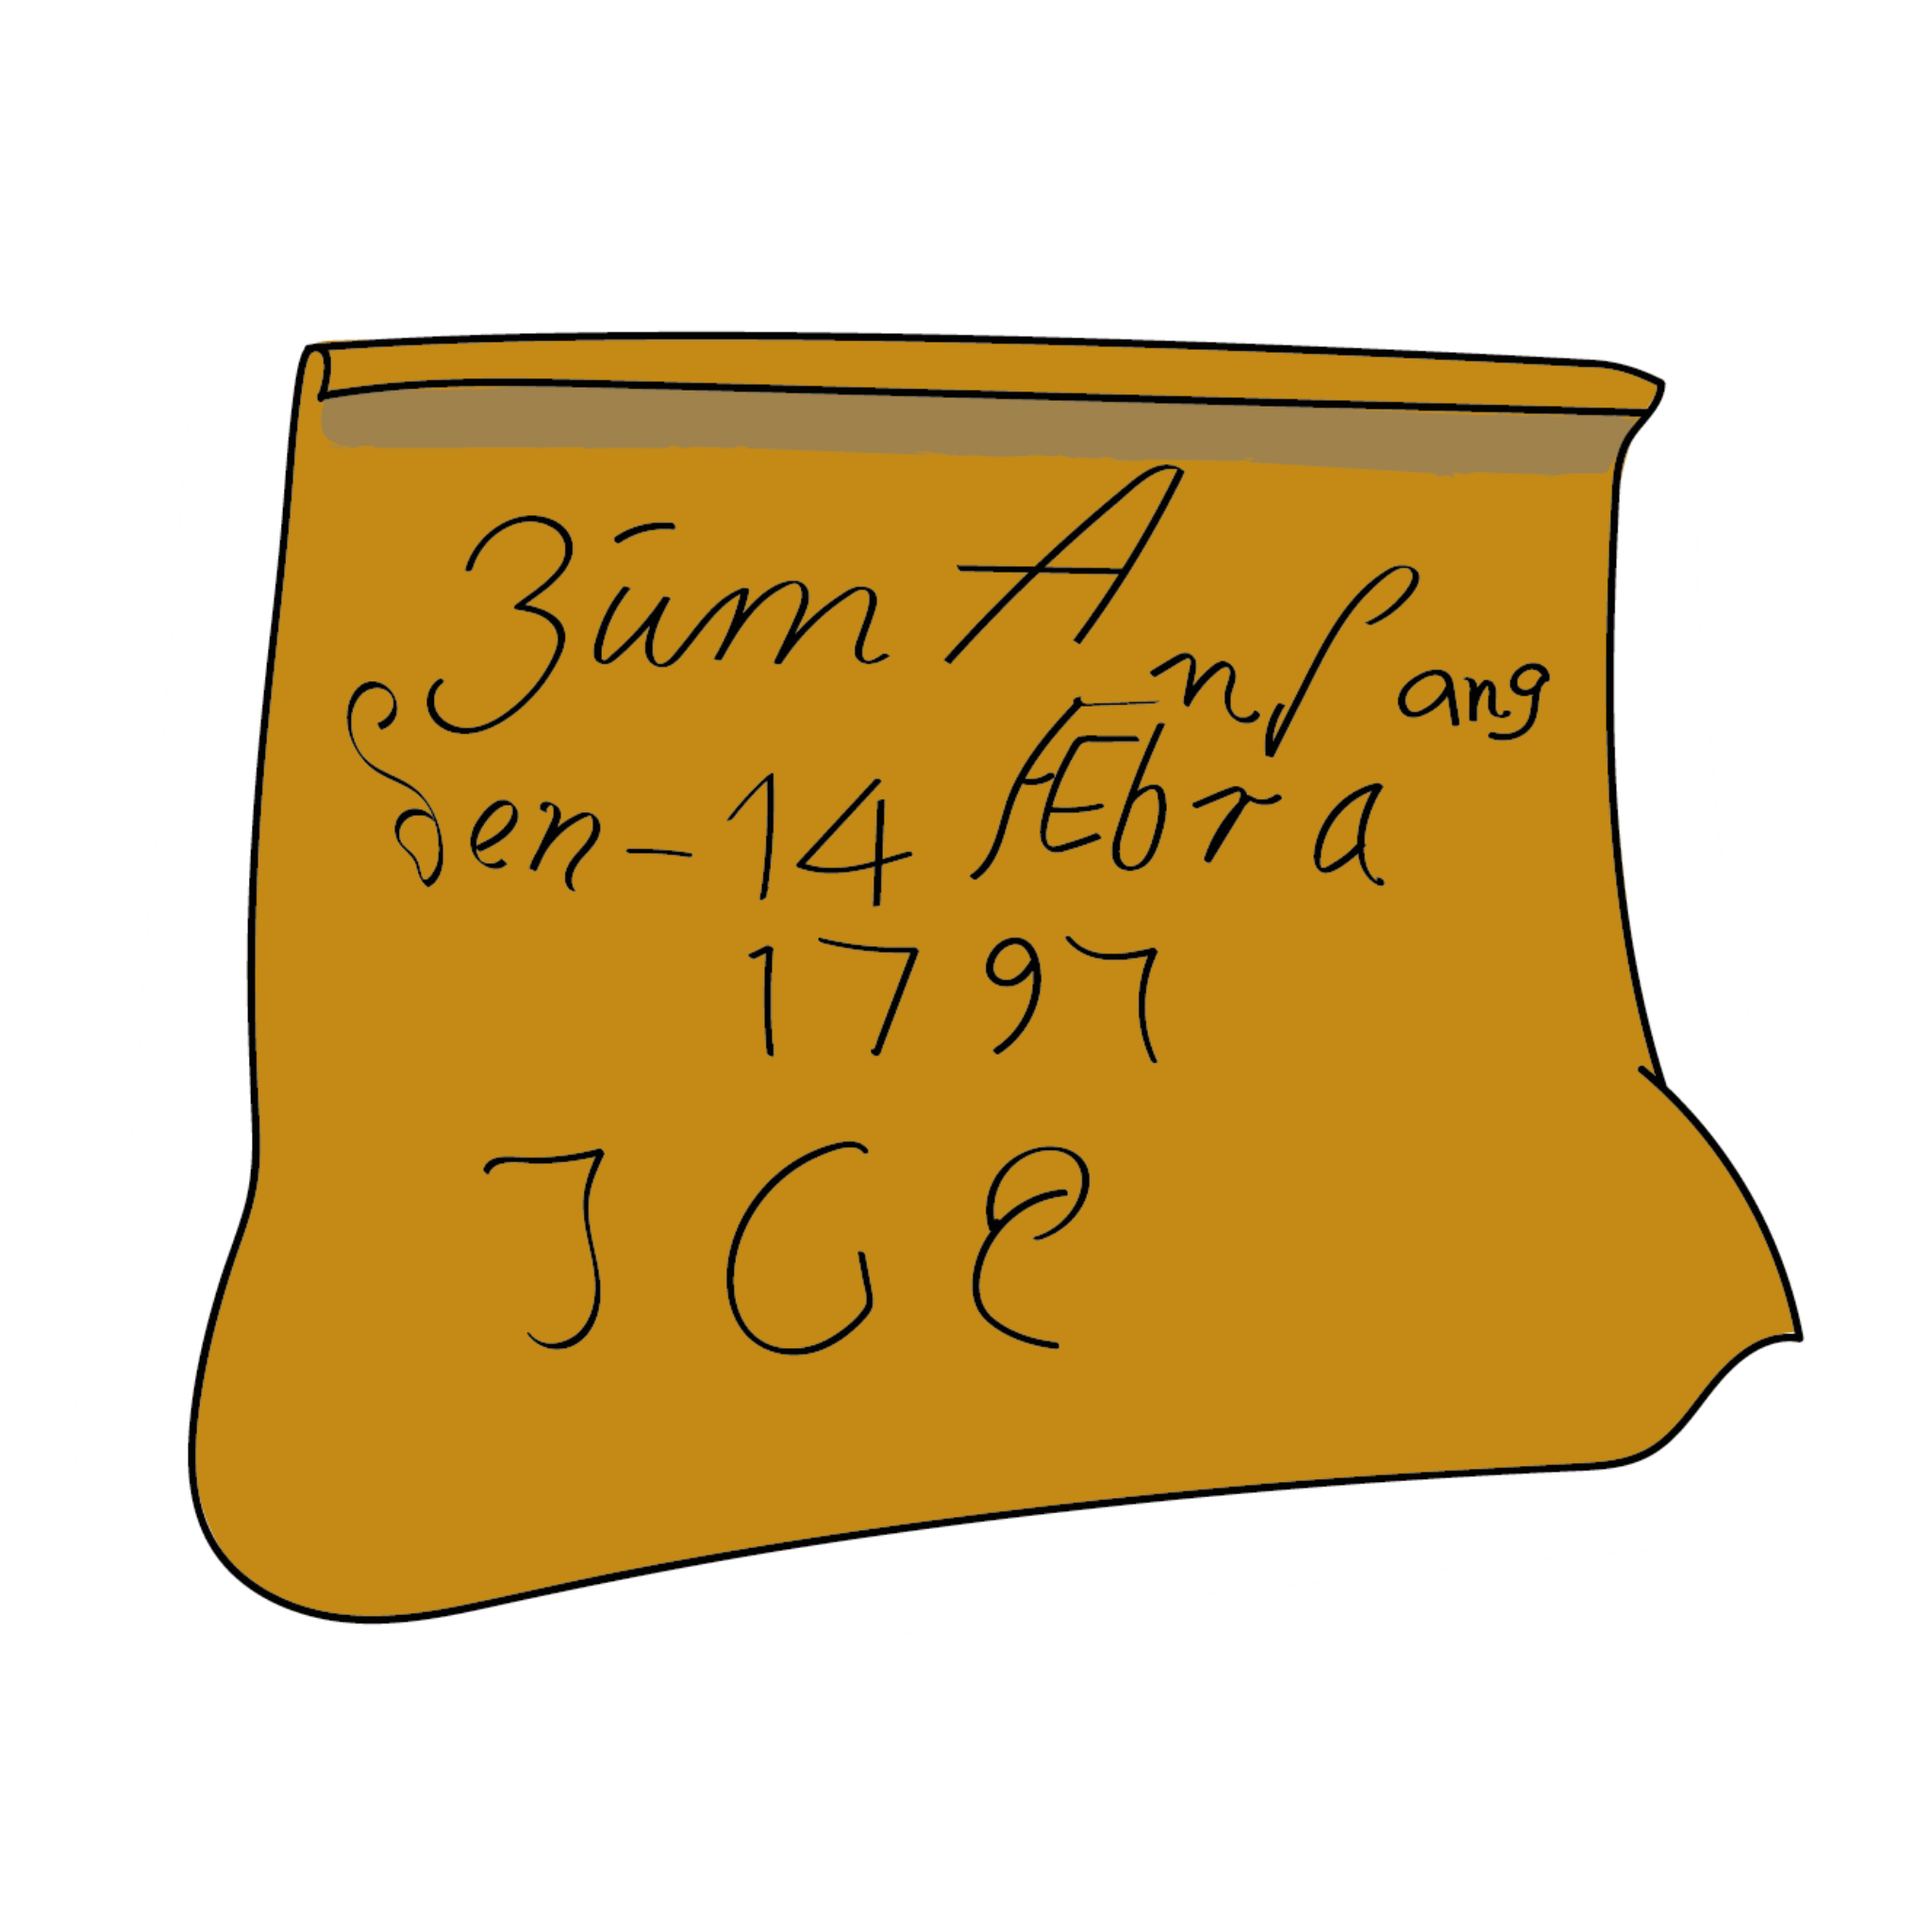 Zūm Anfang
Den - 14 FEbra
1797
J G E